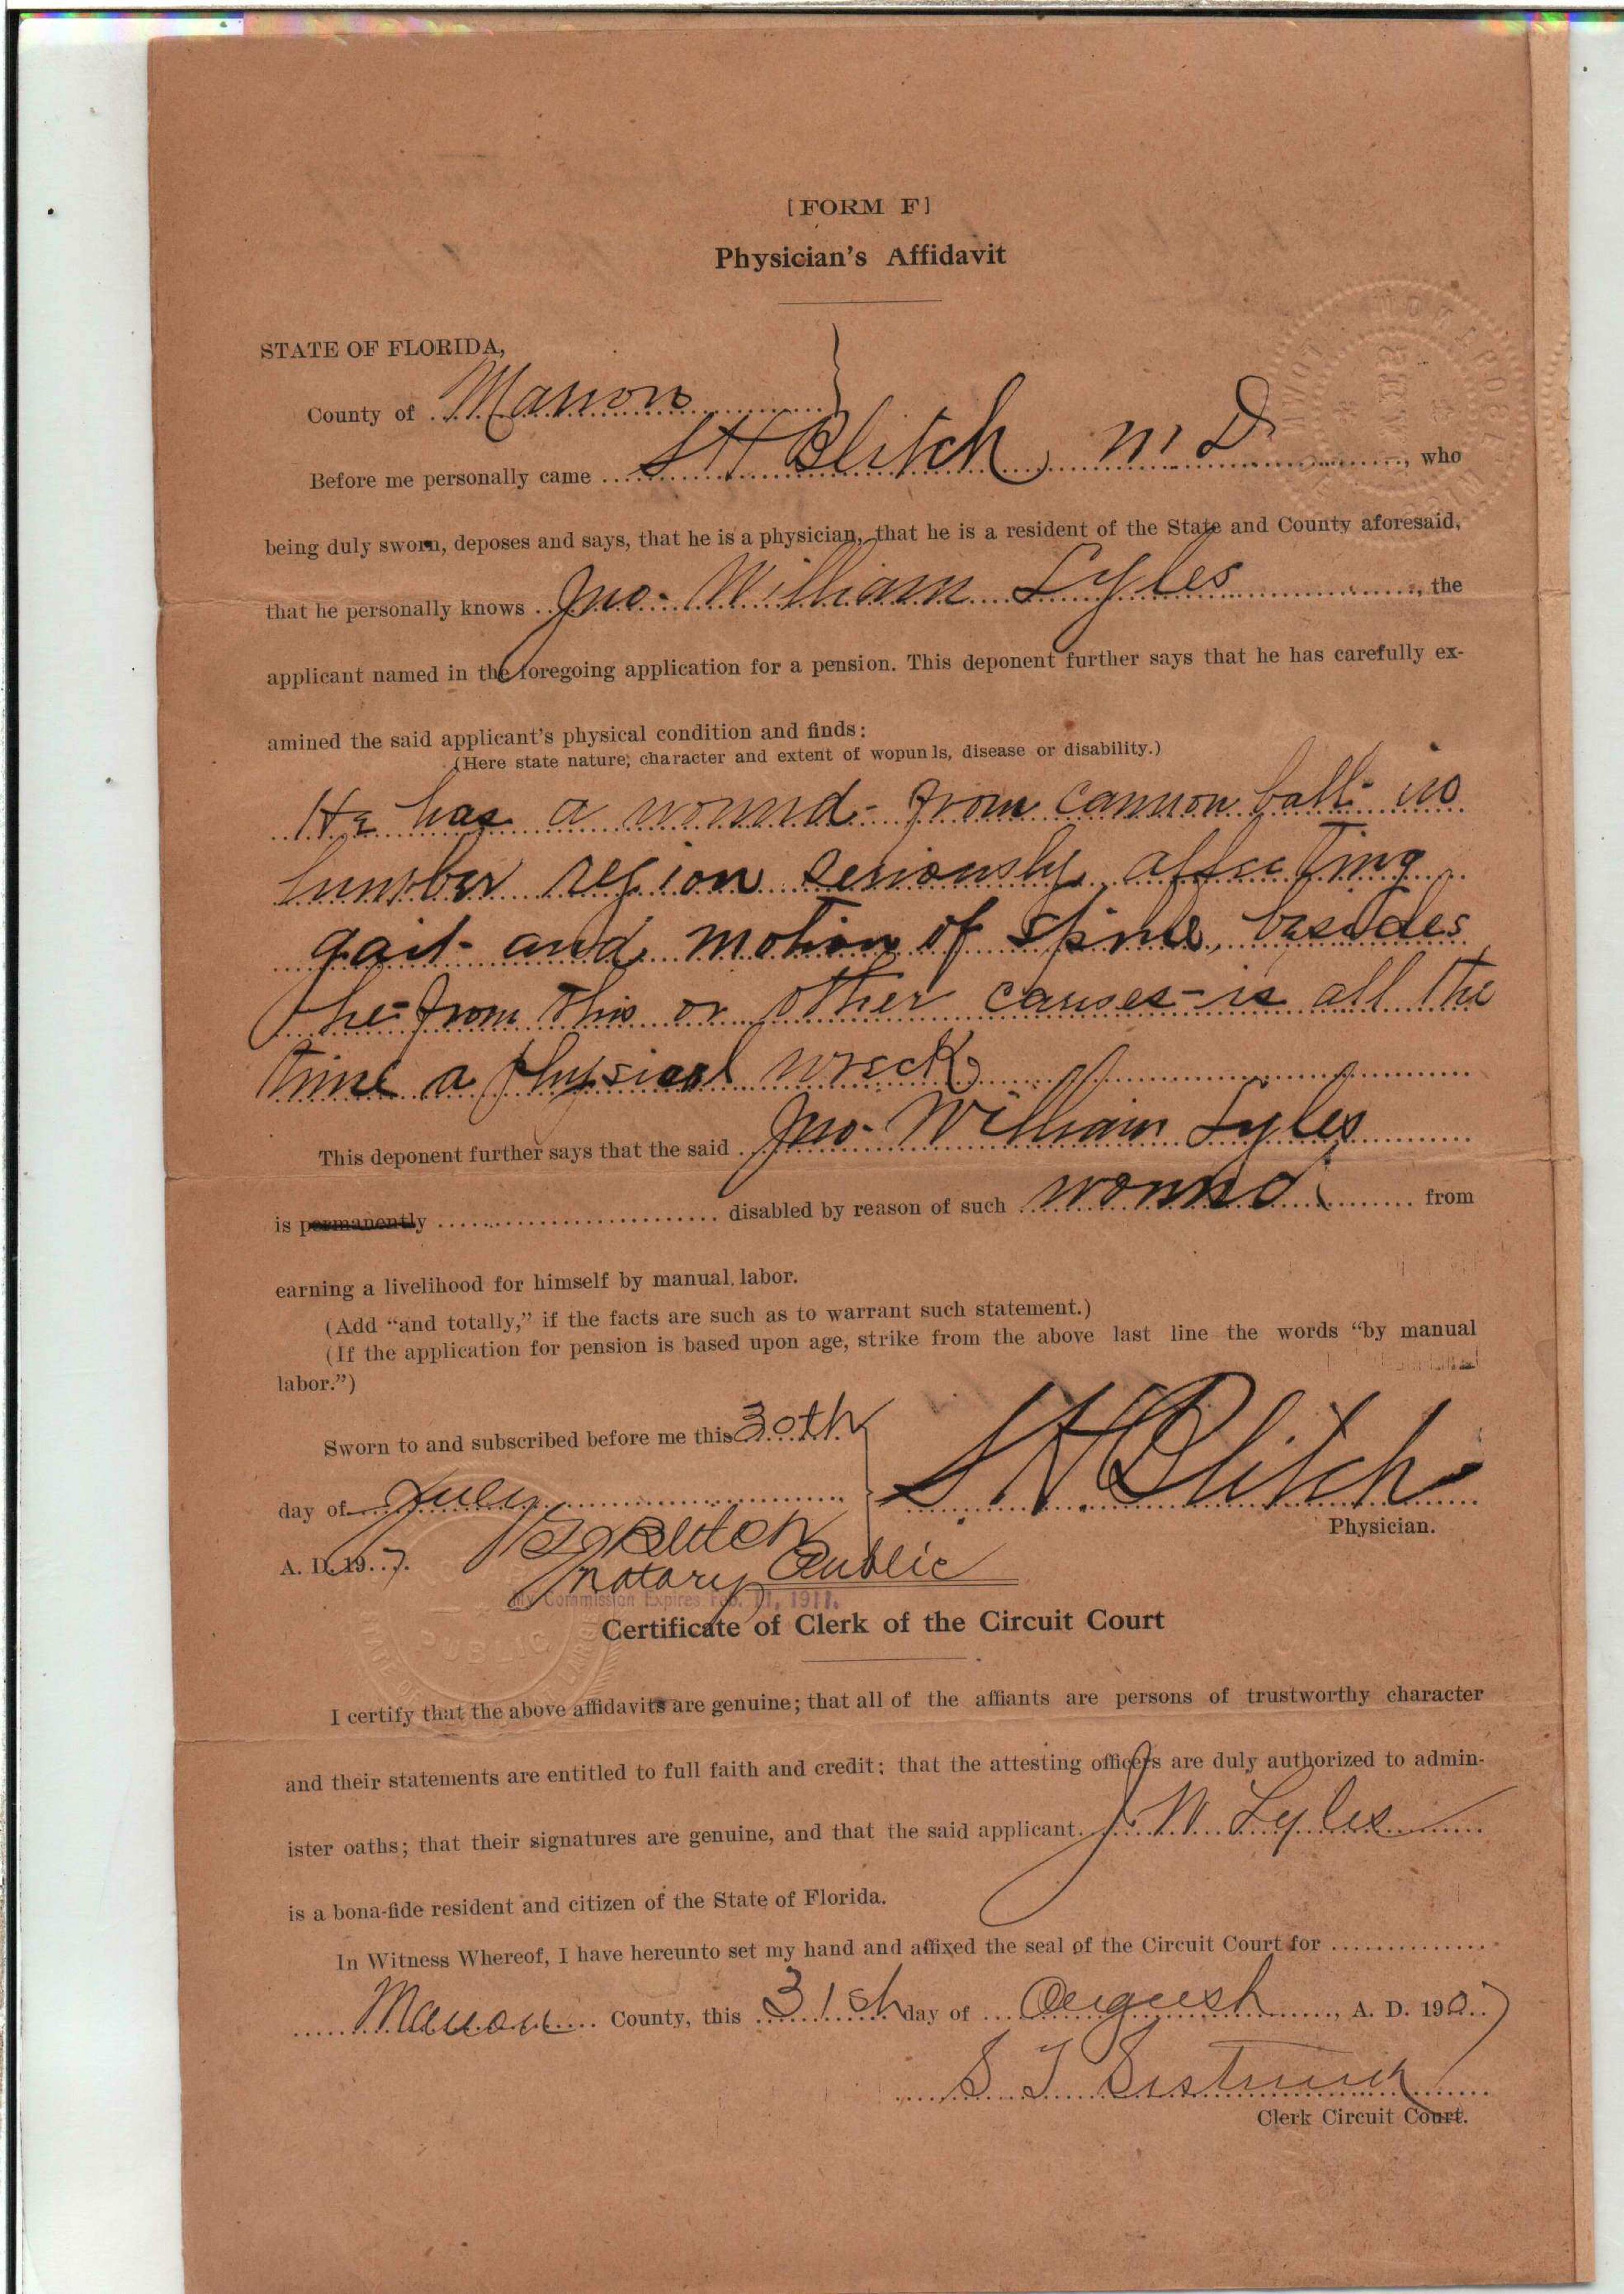 [FORM F]
Physician's Affidavit
STATE OF FLORIDA,
County of Marion
Before me personally came S H Blitch, M D, who
being duly sworn, deposes and says, that he is a physician, that he is a resident of the State and County aforesaid,
that he personally knows Jno. William Lyles, the
applicant named in the foregoing application for a pension. This deponent further says that he has carefully ex-
amined the said applicant's physical condition and finds:
(Here state nature; character and extent of wopun ls, disease or disability.)
He has a wound- from cannon ball- in
lumbar region seriously affecting
gait- and motion of spine, besides
he- from this or other causes- is all the
time a physical wreck
This deponent further says that the said Jno- William Lyles
is permanently disabled by reason of such wound from
earning a livelihood for himself by manual labor.
(Add "and totally," if the facts are such as to warrant such statement.)
(If the application for pension is based upon age, strike from the above last line the words "by manual
labor.")
Sworn to and subscribed before me this 30th
day of July
S H Blitch
Physician.
A. D. 19 7. Blitch
Notary Public
My Commission Expires Feb. 11, 1911.
Certificate of Clerk of the Circuit Court
I certify that the above affidavits are genuine; that all of the affiants are persons of trustworthy character
and their statements are entitled to full faith and credit; that the attesting officers are duly authorized to admin-
ister oaths; that their signatures are genuine, and that the said applicant J. W. Lyles
is a bona-fide resident and citizen of the State of Florida.
In Witness Whereof, I have hereunto set my hand and affixed the seal of the Circuit Court for
Marion County, this 31st day of August, A. D. 1907
S T Sistrunk
Clerk Circuit Court.